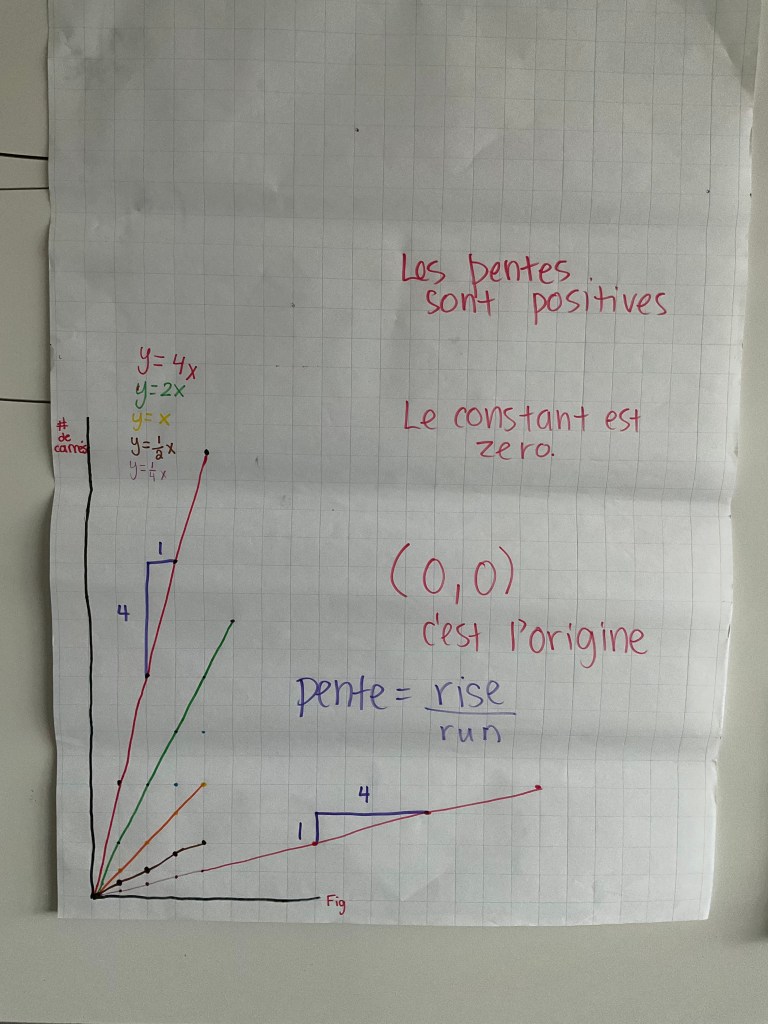 Les pentes
sont positives
y=4x
y=2x
y=x
y=1/2x
y=1/4x
#
de
carrés
Le constant est
zero.
1
4
(0,0)
c'est l'origine
pente = rise/run
4
1
Fig